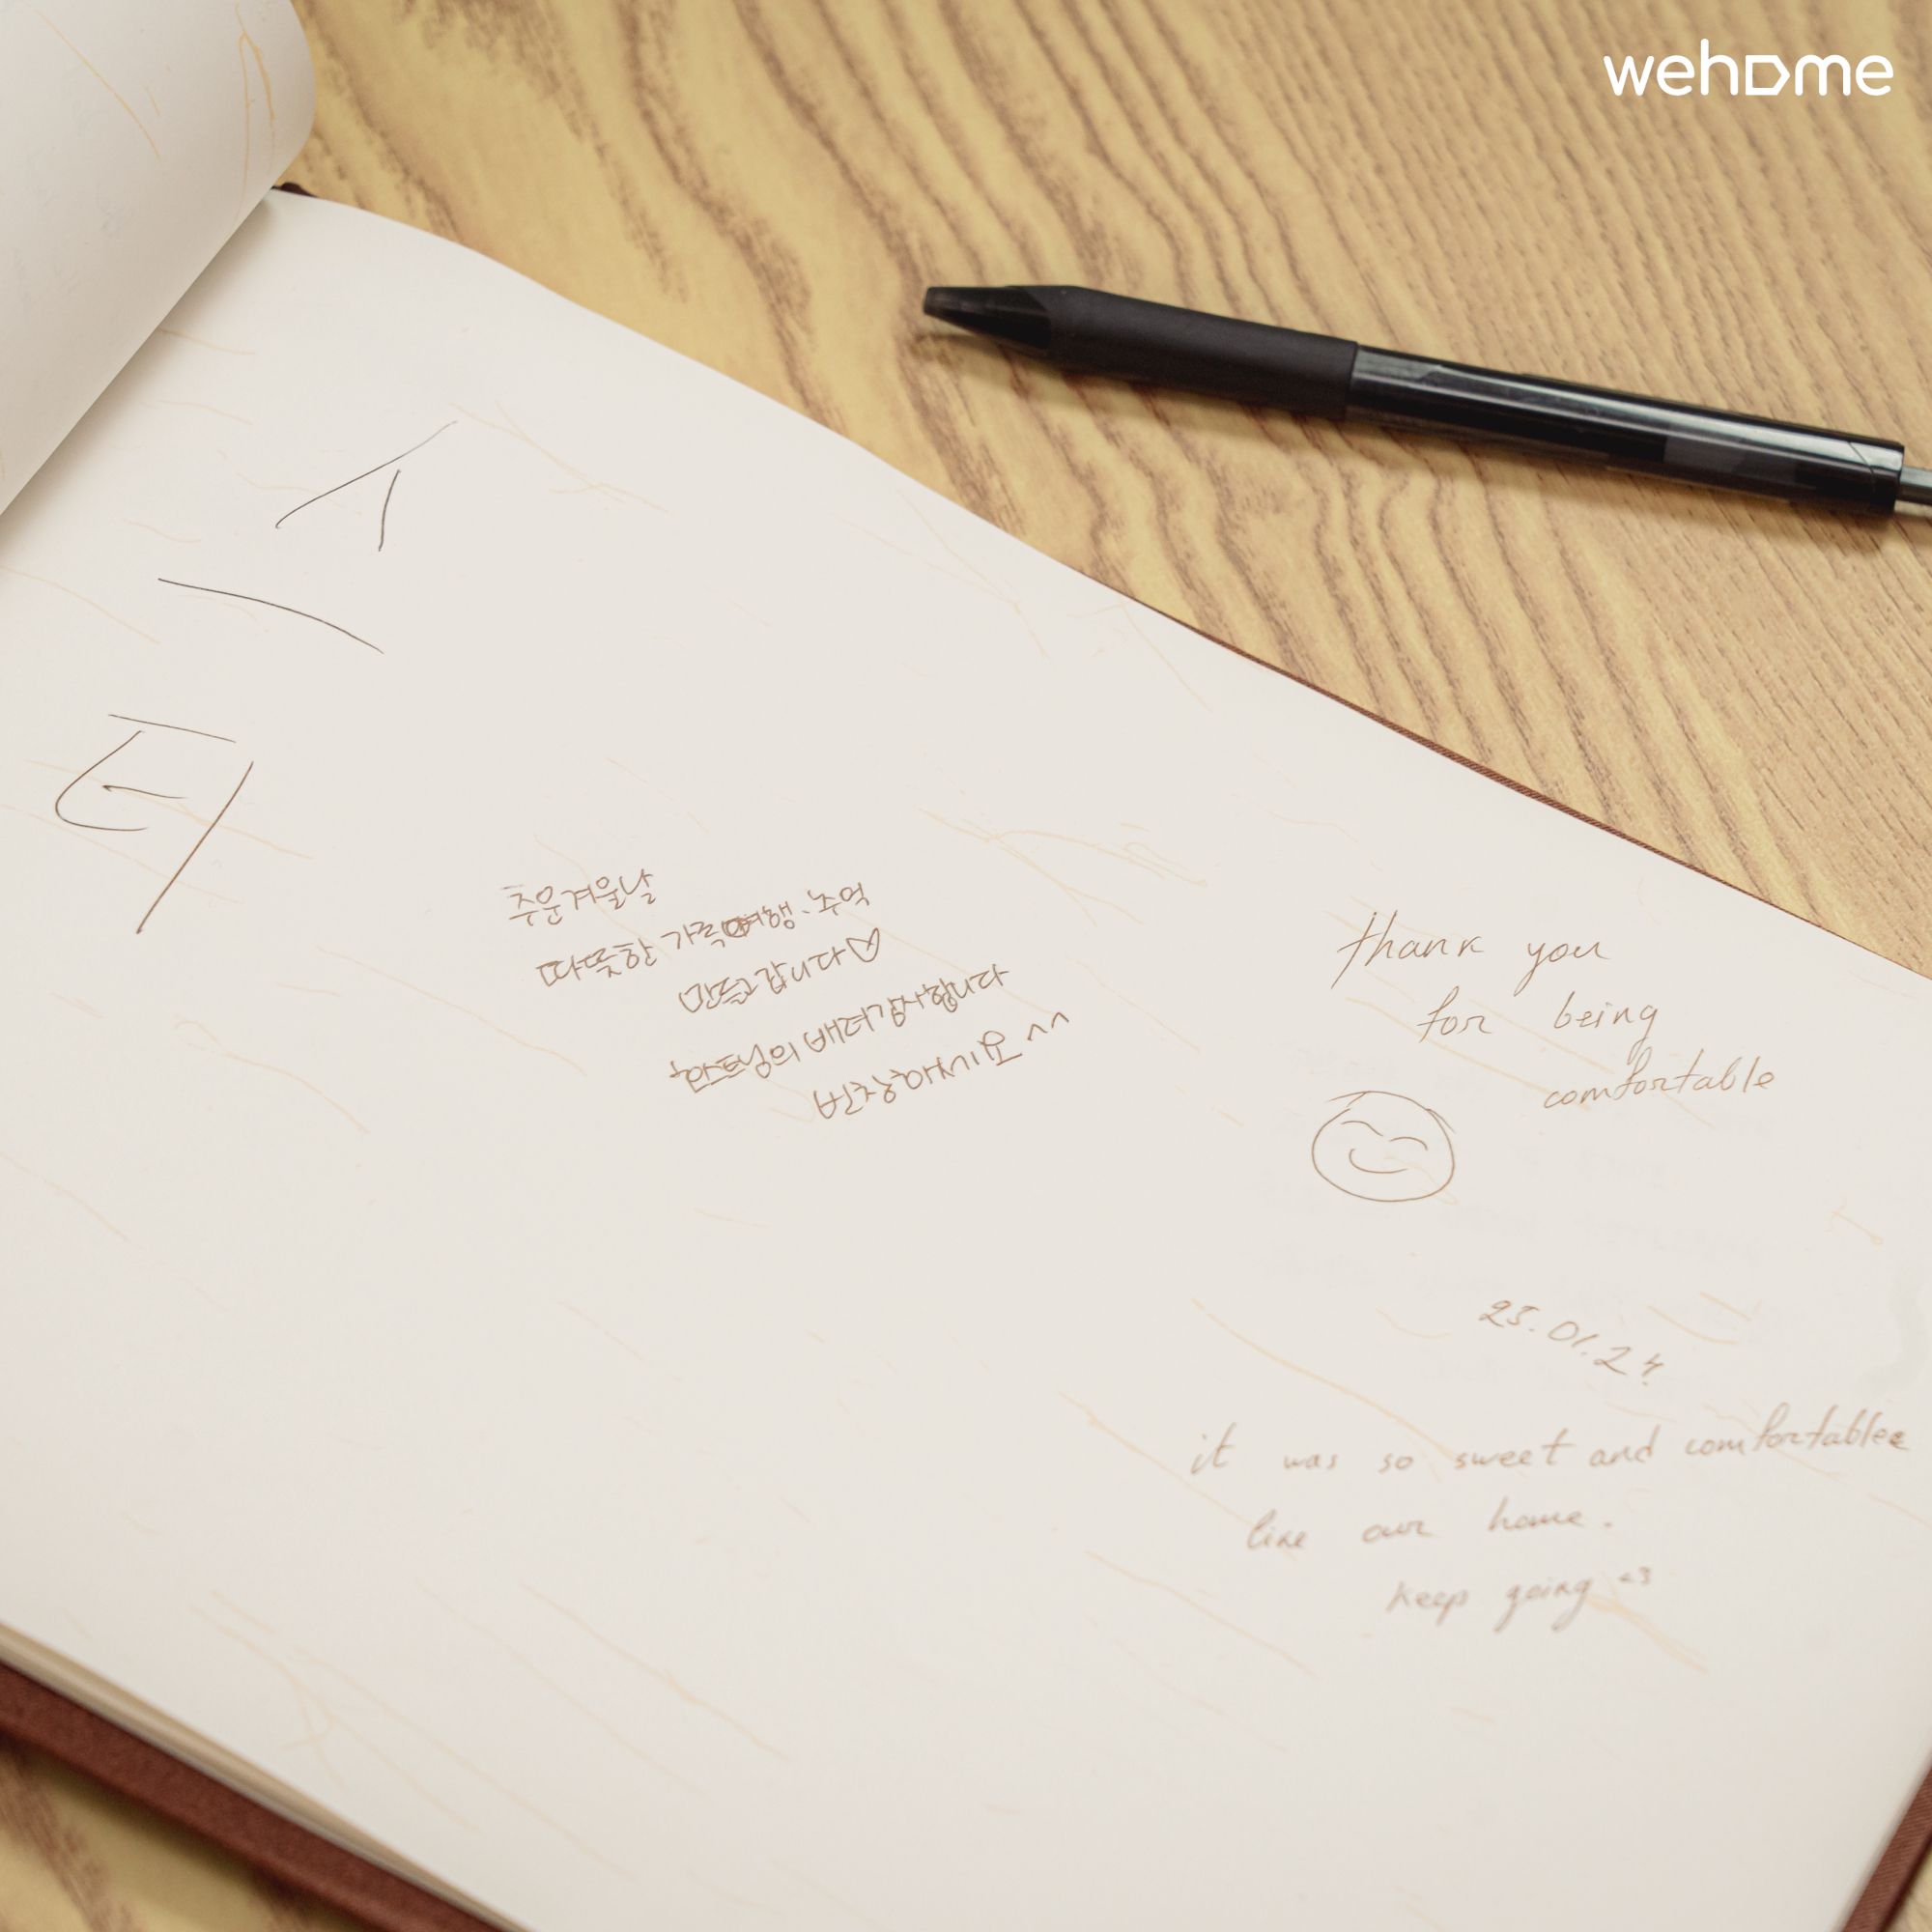 wehome
스
터
추운겨울날
따뜻한 가족여행·추억
만들고갑니다♡
호스트님의 배려감사합니다
번창하세요 ^^
thank you
for being
comfortable
23.01.24
it was so sweet and comfortablee
like our home.
keep going <3